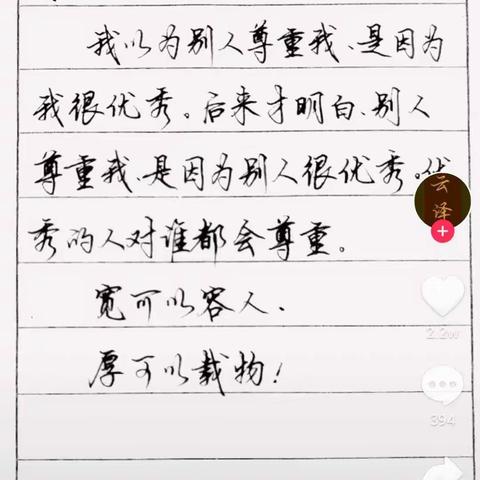 我以为别人尊重我、是因为
我很优秀。后来才明白、别人
尊重我、是因为别人很优秀。优
秀的人对谁都会尊重。
宽可以容人、
厚可以载物！
云泽
2.2w
394